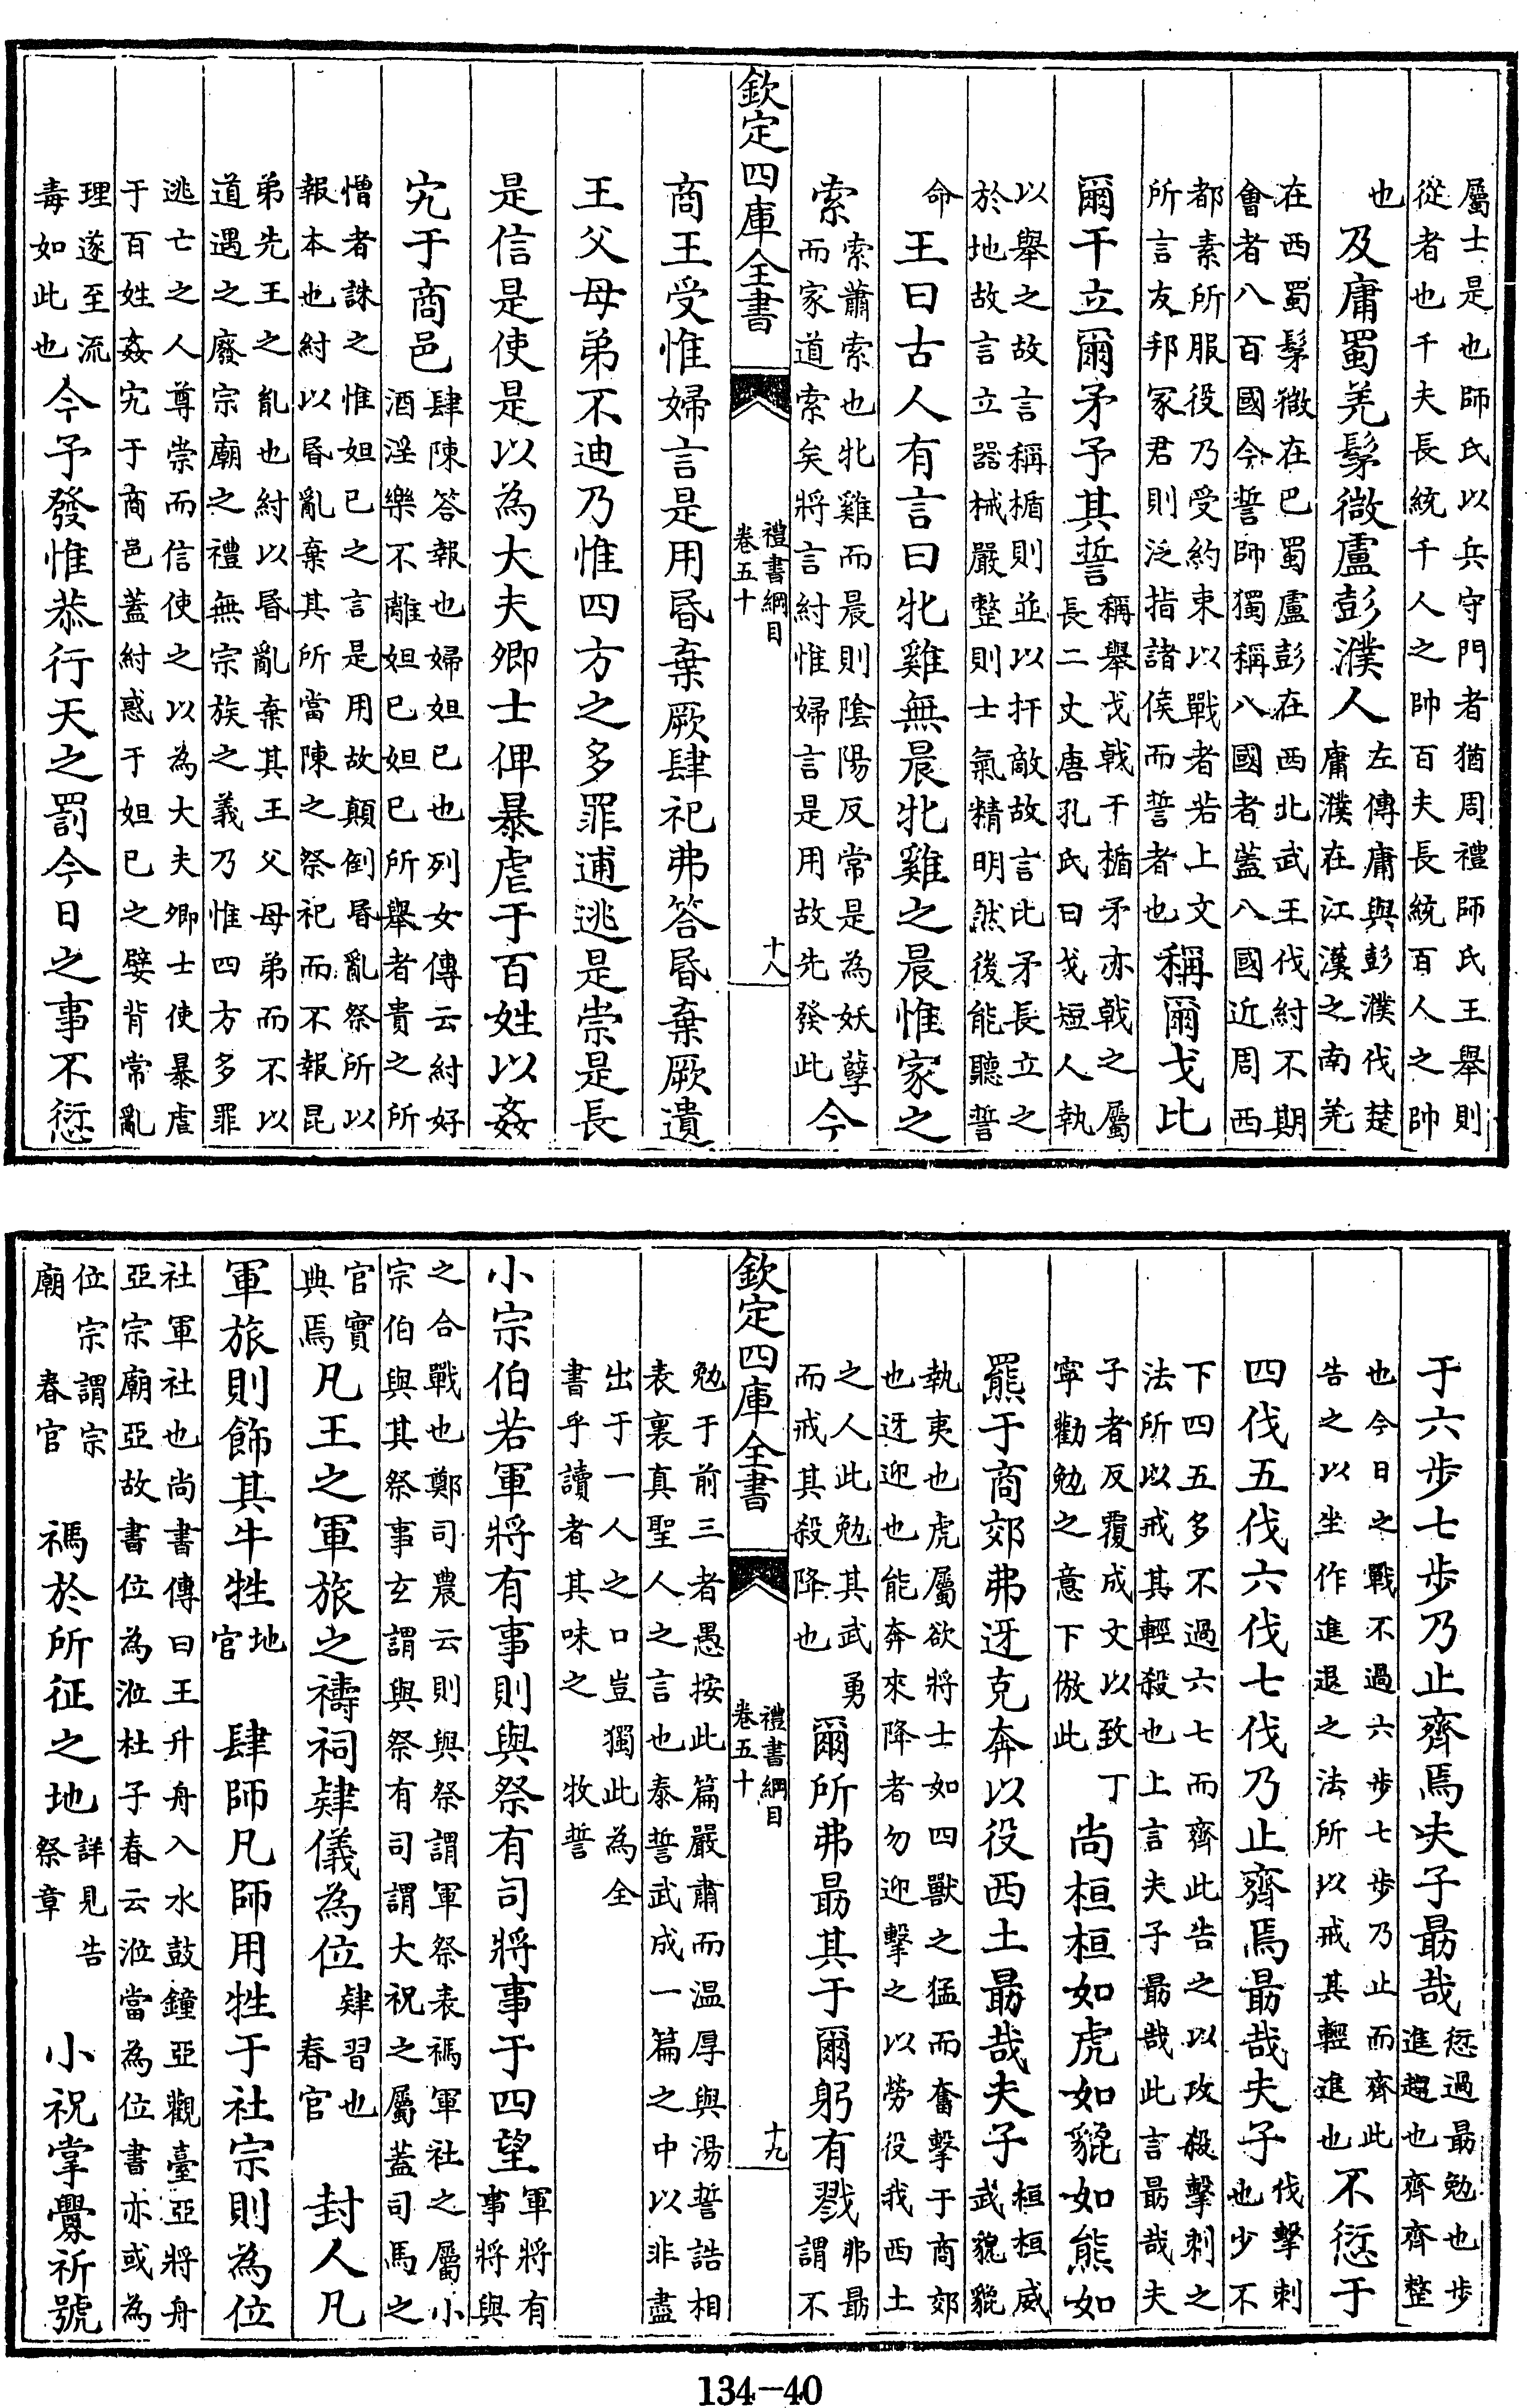 屬士是也師氏以兵守門者猶周禮師氏王舉則
從者也千夫長統千人之帥百夫長統百人之帥
也及庸蜀羌髳微盧彭濮人左傳庸與彭濮伐楚
庸濮在江漢之南羌
在西蜀髳微在巴蜀盧彭在西北武王伐紂不期
會者八百國今誓師獨稱八國者蓋八國近周西
都素所服役乃受約束以戰者若上文
所言友邦冢君則泛指諸侯而誓者也稱爾戈比
爾干立爾矛予其誓稱舉戈戟干楯矛亦戟之屬
長二丈唐孔氏曰戈短人執
以舉之故言稱楯則並以扞敵故言比矛長立之
於地故言立器械嚴整則士氣精明然後能聽誓
命王曰古人有言曰牝雞無晨牝雞之晨惟家之
索索蕭索也牝雞而晨則陰陽反常是為妖孽
而家道索矣將言紂惟婦言是用故先發此今
欽定四庫全書
禮書綱目
卷五十
十八
商王受惟婦言是用昬棄厥肆祀弗答昬棄厥遺
王父母弟不迪乃惟四方之多罪逋逃是崇是長
是信是使是以為大夫卿士俾暴虐于百姓以姦
宄于商邑肆陳答報也婦妲已也列女傳云紂好
酒淫樂不離妲已妲已所舉者貴之所
憎者誅之惟妲已之言是用故顛倒昬亂祭所以
報本也紂以昬亂棄其所當陳之祭祀而不報昆
弟先王之亂也紂以昬亂棄其王父母弟而不以
道遇之廢宗廟之禮無宗族之義乃惟四方多罪
逃亡之人尊崇而信使之以為大夫卿士使暴虐
于百姓姦宄于商邑蓋紂惑于妲已之嬖背常亂
理遂至流
毒如此也今予發惟恭行天之罰今日之事不愆
于六步七步乃止齊焉夫子勗哉愆過勗勉也步
進趨也齊齊整
也今日之戰不過六步七步乃止而齊此
告之以坐作進退之法所以戒其輕進也不愆于
四伐五伐六伐七伐乃止齊焉勗哉夫子伐擊刺
也少不
下四五多不過六七而齊此告之以攻殺擊刺之
法所以戒其輕殺也上言夫子勗哉此言勗哉夫
子者反覆成文以致丁
寧勸勉之意下倣此尚桓桓如虎如貔如熊如
羆于商郊弗迓克奔以役西土勗哉夫子桓桓威
武貌貔
執夷也虎屬欲將士如四獸之猛而奮擊于商郊
也迓迎也能奔來降者勿迎擊之以勞役我西土
之人此勉其武勇
而戒其殺降也爾所弗勗其于爾躬有戮弗勗
謂不
欽定四庫全書
禮書綱目
卷五十
十九
勉于前三者愚按此篇嚴肅而溫厚與湯誓誥相
表裏真聖人之言也泰誓武成一篇之中以非盡
出于一人之口豈獨此為全
書乎讀者其味之　牧誓
小宗伯若軍將有事則與祭有司將事于四望軍將有
事將與
之合戰也鄭司農云則與祭謂軍祭表禡軍社之屬小
宗伯與其祭事玄謂與祭有司謂大祝之屬蓋司馬之
官實
典焉凡王之軍旅之禱祠肄儀為位肄習也
春官　封人凡
軍旅則飾其牛牲地
官　肆師凡師用牲于社宗則為位
社軍社也尚書傳曰王升舟入水鼓鐘亞觀臺亞將舟
亞宗廟亞故書位為涖杜子春云涖當為位書亦或為
位宗謂宗
廟　春官　禡於所征之地詳見告
祭章　小祝掌釁祈號
134-40